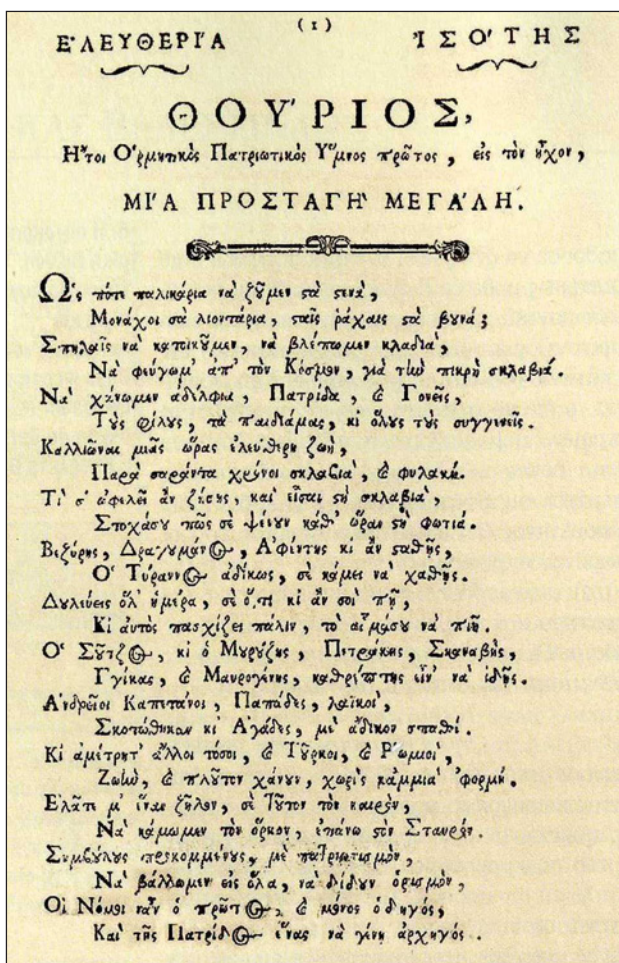 (1)
Ε᾿ΛΕΥΘΕΡΙ΄Α ἸΣΟ΄ΤΗΣ
ΘΟΥ΄ΡΙΟΣ,
Η῎τοι Ο῾ρμητικὸς Πατριωτικὸς Υ῞μνος πρῶτος, εἰς τὸν ἦχον,
ΜΙ΄Α ΠΡΟΣΤΑΓΗ΄ ΜΕΓΑ΄ΛΗ.
Ω῾ς πότε παλικάρια νὰ ζοῦμεν στὰ στενὰ,
Μονάχοι σὰ λιοντάρια, σταῖς ῥάχαις στὰ βουνά;
Σπηλαῖς νὰ κατοικοῦμεν, νὰ βλέπωμεν κλαδιὰ,
Νὰ φεύγωμ᾿ ἀπ᾿ τὸν Κόσμον, γιὰ τὴν πικρὴ σκλαβιά.
Νὰ χάνωμεν ἀδέλφια, Πατρίδα, καὶ Γονεῖς,
Τοὺς φίλους, τὰ παιδιάμας, κι ὅλους τοὺς συγγενεῖς.
Καλλιῶναι μιᾶς ὥρας ἐλεύθερη ζωὴ,
Παρὰ σαράντα χρόνοι σκλαβιὰ, καὶ φυλακή.
Τί σ᾿ ὠφελεῖ ἂν ζήσῃς, καὶ εἶσαι στὴ σκλαβιὰ,
Στοχάσου πῶς σὲ ψένουν καθ᾿ ὥραν στὴ φωτιά.
Βεζύρης, Δραγουμάνος, Α᾿φέντης κι ἂν σταθῇς,
Ο῾ Τύραννος ἀδίκως, σὲ κάμει νὰ χαθῇς.
Δουλεύεις ὅλ᾿ ἡμέρα, σὲ ὅ,τι κι ἂν σοὶ πῇ,
Κι αὐτὸς πασχίζει πάλιν, τὸ αἷμάσου νὰ πιῇ.
Ο῾ Σοῦτζος, κι ὁ Μουρούζης, Πετράκης, Σκαναβῆς,
Γγίκας, καὶ Μαυρογένης, καθρέπτης εἶν᾿ νὰ ἰδῇς.
Α᾿νδρεῖοι Καπετάνοι, Παπάδες, λαϊκοὶ,
Σκοτώθηκαν κι Α᾿γάδες, μὲ ἄδικον σπαθί.
Κι ἀμέτρητ᾿ ἄλλοι τόσοι, καὶ Τοῦρκοι, καὶ Ρ῾ωμιοὶ,
Ζωὴν, καὶ πλοῦτον χάνουν, χωρὶς κάμμιὰ ᾿φορμή.
Ε᾿λᾶτε μ᾿ ἕναν ζῆλον, σὲ τοῦτον τὸν καιρὸν,
Νὰ κάμωμεν τὸν ὅρκον, ἐπάνω στὸν Σταυρόν.
Συμβούλους προκομμένους, μὲ πατριωτισμὸν,
Νὰ βάλλωμεν εἰς ὅλα, νὰ δίδουν ὁρισμὸν,
Οἱ Νόμοι νἆν ὁ πρῶτος, καὶ μόνος ὁδηγὸς,
Καὶ τῆς Πατρίδος ἕνας νὰ γένῃ ἀρχηγός.